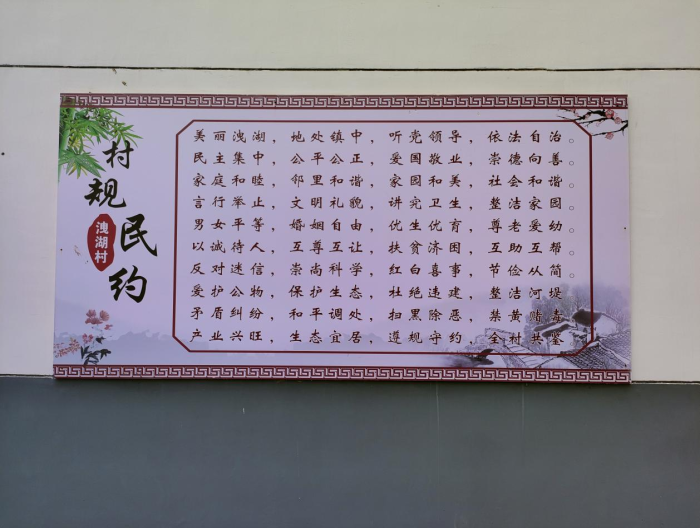 村规民约
洩湖村
美丽洩湖，地处镇中，听党领导，依法自治。
民主集中，公平公正，爱国敬业，崇德向善。
家庭和睦，邻里和谐，家园和美，社会和谐。
言行举止，文明礼貌，讲究卫生，整洁家园。
男女平等，婚姻自由，优生优育，尊老爱幼。
以诚待人，互尊互让，扶贫济困，互助互帮。
反对迷信，崇尚科学，红白喜事，节俭从简。
爱护公物，保护生态，杜绝违建，整洁河堤。
矛盾纠纷，和平调处，扫黑除恶，禁黄赌毒。
产业兴旺，生态宜居，遵规守约，全村共鉴。